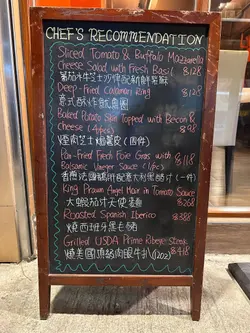 CHEF'S RECOMMENDATION
Sliced Tomato & Buffalo Mozzarella
Cheese Salad with Fresh Basil $128
蕃茄水牛芝士沙律配新鮮羅勒
Deep-Fried Calamari Ring $128
意式酥炸魷魚圈
Baked Potato Skin Topped with Bacon &
Cheese (4pcs) $98
煙肉芝士焗薯皮 (四件)
Pan-Fried Fresh Foie Gras with $118
Balsamic Vinegar Sauce (1pc)
香煎法國鵝肝配意大利黑醋汁 (一件)
King Prawn Angel Hair in Tomato Sauce
大蝦茄汁天使麵 $268
Roasted Spanish Iberico $388
燒西班牙黑毛豬
Grilled USDA Prime Ribeye Steak
燒美國頂級肉眼牛扒 (12oz) $418